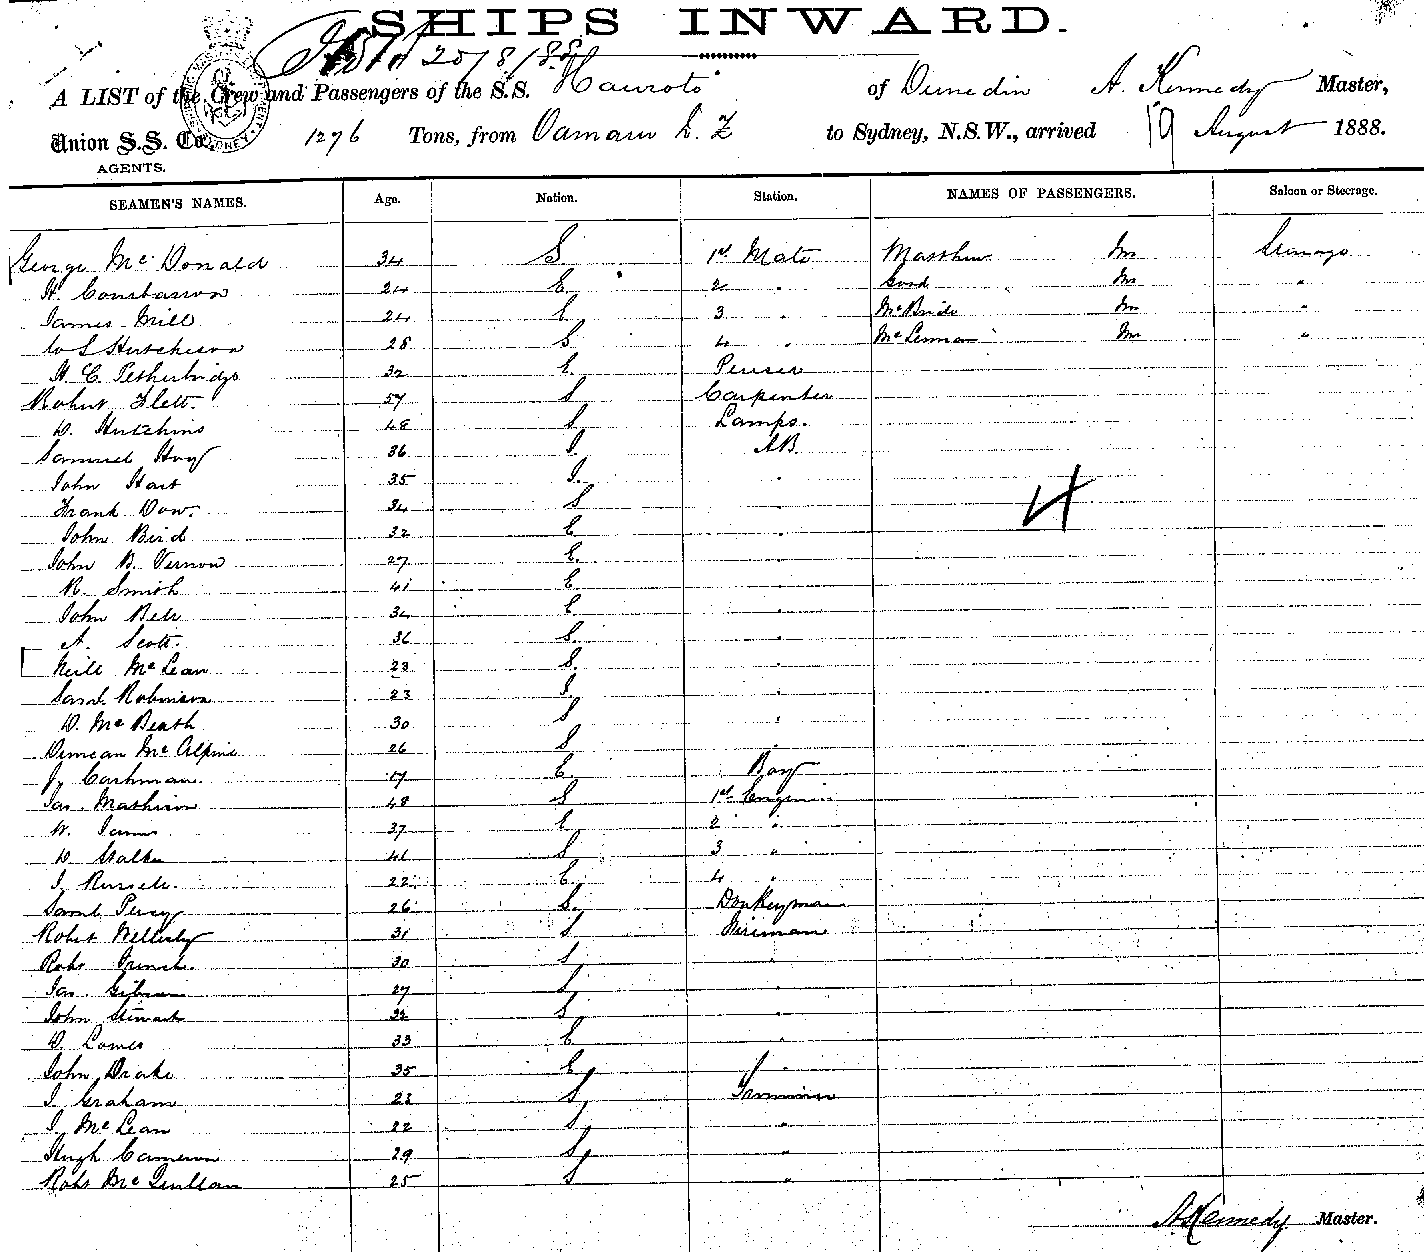 SHIPS INWARD.
20/8/88
A LIST of the Crew and Passengers of the S.S. Hauroto of Dunedin A. Kennedy Master,
Union S.S. Co. 1276 Tons, from Oamaru N. Z to Sydney, N.S.W., arrived 19 August 1888.
AGENTS.
SEAMEN'S NAMES. Age. Nation. Station. NAMES OF PASSENGERS. Saloon or Steerage.
George McDonald 34 S 1st Mate Matthew Mr Steerage
H. 24 E 2 " Good Mr "
James Mill 24 E 3 " McBride Mr "
W S Hutcheson 28 S 4 " McLennan Mr "
H. C. Petherbridge 32 E. Purser
Robert Flett. 57 S Carpenter
D. Hutchins 48 S Lamps.
Samuel Hoy 36 I. AB.
John Hart 35 I. "
Frank Dow. 34 S "
John Bird 32 E "
John B. Vernon 27 E. "
R. Smith 41 E "
John Bell 34 E "
A. Scott. 36 S. "
Neill McLean 23 S. "
Saml. Robinson 23 I. "
D. McBeath 30 S "
Duncan McAlpine 26 S "
J. Cashman. 17 E Boy
Jas. Mathison 48 S 1st Engineer
W. James 37 E 2 "
D. Walker 41 S 3 "
J. Russell. 22 E. 4 "
Saml Percy 26 S. Donkeyman
Robert 31 S Fireman
Robt 30 S "
Jas. Gibson 27 S "
John Stewart 32 S "
D. Lowes 33 E "
John Drake 35 E "
J. Graham 23 S Trimmer
J. McLean 22 S "
Hugh Cameron 29 S "
Robt McQuillan 25 S "
4
A. Kennedy Master.